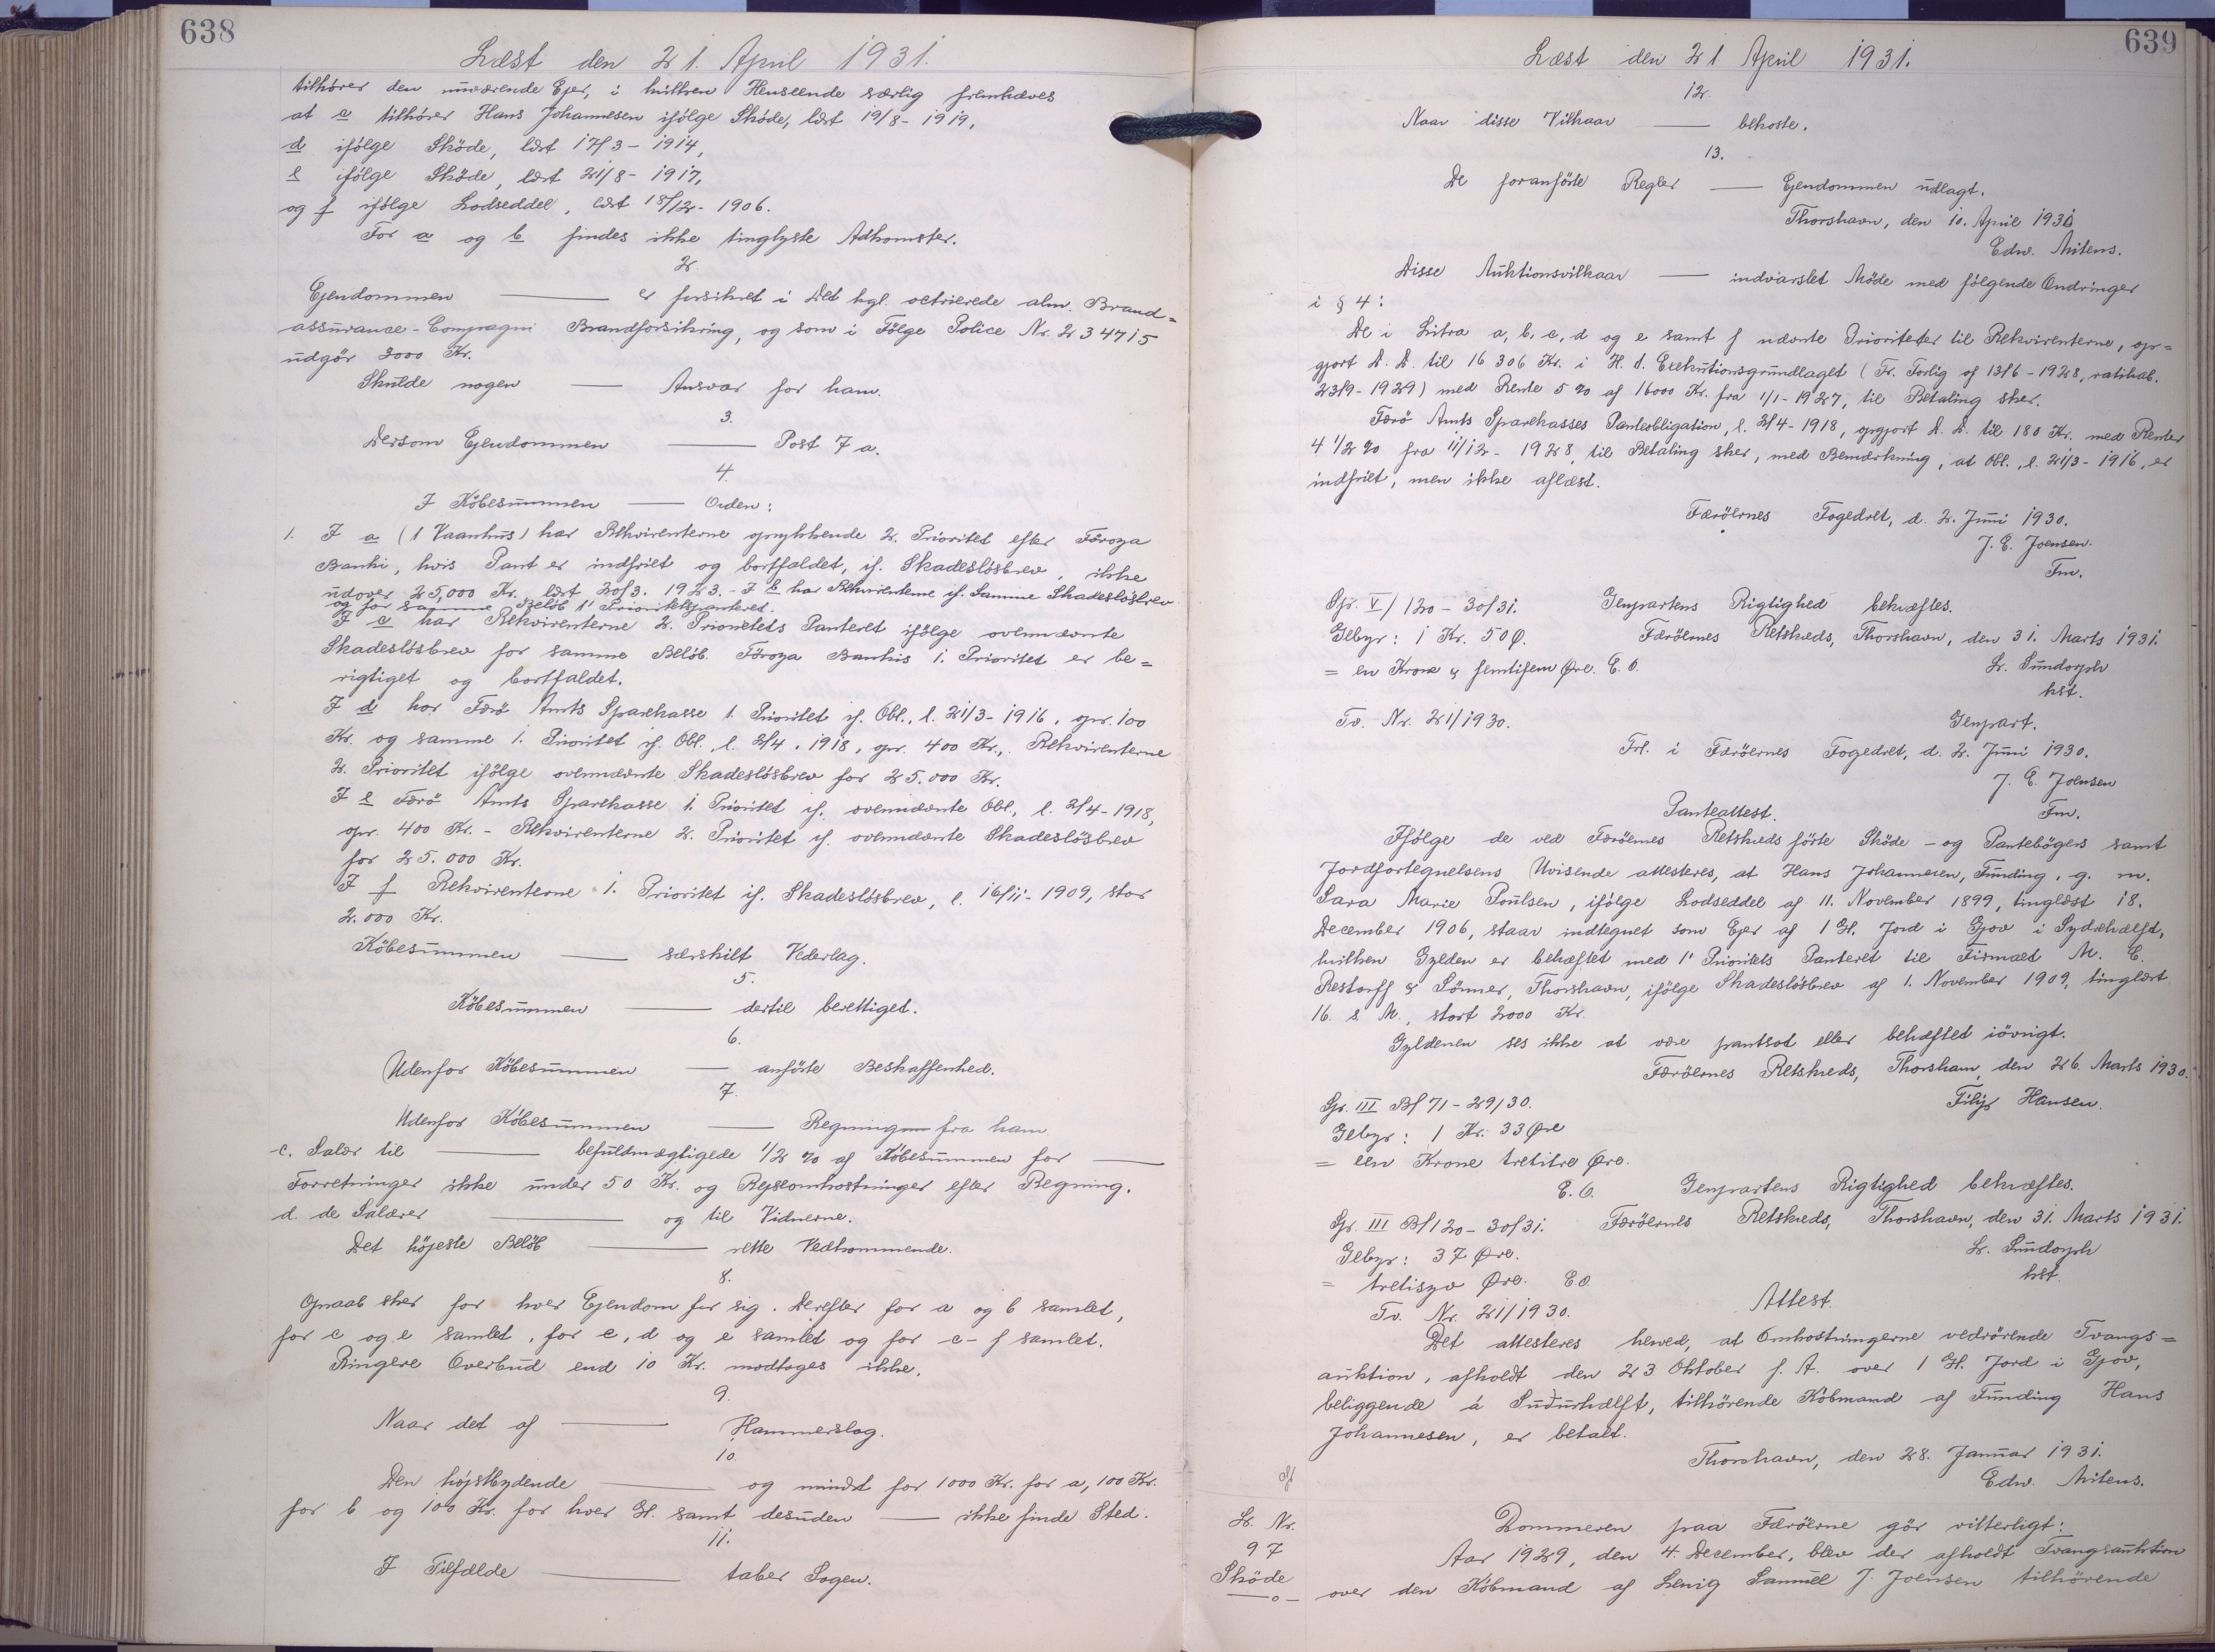 638
Læst den 21. April 1931.
tilhører den nuværende Ejer, i hvilken Henseende særlig fremhæves
at c tilhører Hans Johannesen ifölge Sköde, læst 19/8 - 1919,
d ifölge Sköde, læst 17/3 - 1914,
e ifölge Sköde, læst 21/8 - 1917,
og f ifölge Lodseddel, læst 18/12 - 1906.
For a og b findes ikke tinglyste Adkomster.
2.
Ejendommen — er forsikret i Det kgl. octrierede alm. Brand=
assurance-Compagni Brandforsikring, og som i Fölge Police Nr. 234715
udgör 3000 Kr.
Skulde nogen — Ansvar for ham.
3.
Dersom Ejendommen — Post 7 a.
4.
I Köbesummen — Orden:
1. I a (1 Vaanhus) har Rekvirenterne oprykkende 2. Prioritet efter Föroya
Banki, hvis Pant er indfriet og bortfaldet, if. Skadeslösbrev, ikke
udover 25,000 Kr. læst 20/3. 1923. - I b har Rekvirenterne if. Samme Skadeslösbrev
og for samme Belöb 1' Prioritetspanteret.
I c har Rekvirenterne 2. Prioritets Panteret ifölge ovennævnte
Skadeslösbrev for samme Belöb. Föroya Bankis 1. Prioritet er be=
rigtiget og bortfaldet.
I d har Færö Amts Sparekasse 1. Prioritet if. Obl., l. 21/3 - 1916, opr. 100
Kr. og samme 1. Prioritet if. Obl. l. 2/4. 1918, opr. 400 Kr., Rekvirenterne
2. Prioritet ifölge ovennævnte Skadeslösbrev for 25.000 Kr.
I e Færö Amts Sparekasse 1. Prioritet if. ovennævnte Obl., l. 2/4 - 1918,
opr. 400 Kr. - Rekvirenterne 2. Prioritet if. ovennævnte Skadeslösbrev
for 25.000 Kr.
I f Rekvirenterne 1. Prioritet if. Skadeslösbrev, l. 16/11 - 1909, stor
2.000 Kr.
Köbesummen — særskilt Vederlag.
5.
Köbesummen — dertil berettiget.
6.
Udenfor Köbesummen — anförte Beskaffenhed.
7.
Udenfor Köbesummen — Regning fra ham
c. Salær til — befuldmægtigede 1/2 % af Köbesummen for —
Forretninger ikke under 50 Kr. og Rejseomkostninger efter Regning.
d. de Salærer — og til Vidnerne.
Det höjeste Belöb — rette Vedkommende.
8.
Opraab sker for hver Ejendom for sig. Derefter for a og b samlet,
for c og e samlet, for c, d og e samlet og for c - f samlet.
Ringere Overbud end 10 Kr. modtages ikke.
9.
Naar det af — Hammerslag.
10.
Den højstbydende — og mindst for 1000 Kr. for a, 100 Kr.
for b og 100 Kr. for hver Gl. samt desuden — ikke finde Sted.
11.
I Tilfælde — taber Sagen.
639
Læst den 21 April 1931.
12.
Naar disse Vilkaar — bekoste.
13.
De foranförte Regler — Ejendommen udlagt.
Thorshavn, den 10. April 1930
Edw. Mitens.
Disse Auktionsvilkaar — indvarslet Möde med fölgende Ændringer
i § 4:
De i Litra a, b, c, d og e samt f nævnte Prioriteter til Rekvirenterne, op=
gjort D. D. til 16306 Kr. i H. t. Exekutionsgrundlaget (Fr. Forlig af 13/6 - 1928, ratihab.
23/9 - 1929) med Rente 5 % af 16000 Kr. fra 1/1 - 1927, til Betaling sker.
Færö Amts Sparekasses Panteobligation, l. 2/4 - 1918, opgjort D. D. til 180 Kr. med Renter
4 1/2 % fra 11/12 - 1928, til Betaling sker, med Bemærkning, at Obl., l. 21/3 - 1916, er
indfriet, men ikke aflæst.
Færöernes Fogedret, d. 2. Juni 1930.
J. E. Joensen.
Fm.
Gr. V/120 - 30/31. Genpartens Rigtighed bekræftes.
Gebyr: 1 Kr. 50 Ø. Færöernes Retskreds, Thorshavn, den 31. Marts 1931.
= en Krone & femtifem Øre. E. O. Lr. Sundorph
kst.
Tv. Nr. 21/1930. Genpart.
Frl. i Færöernes Fogedret, d. 2. Juni 1930.
J. E. Joensen
Fm.
Panteattest.
Ifölge de ved Færöernes Retskreds förte Sköde - og Pantebögers samt
Jordfortegnelsens Udvisende attesteres, at Hans Johannesen, Funding, g. m.
Sara Marie Poulsen, ifölge Lodseddel af 11. November 1899, tinglæst 18.
December 1906, staar indtegnet som Ejer af 1 Gl. Jord i Gjov i Sydrehælft,
hvilken Gylden er behæftet med 1' Prioritets Panteret til Firmaet M. C.
Restorff & Sönner, Thorshavn, ifölge Skadeslösbrev af 1. November 1909, tinglæst
16. s. M., stort 2000 Kr.
Gyldenen ses ikke at være pantsat eller behæftet iövrigt.
Færöernes Retskreds, Thorshavn, den 26. Marts 1930.
Filip Hansen.
Gr. III B/71 - 29/30.
Gebyr: 1 Kr. 33 Øre
= een Krone tretitre Øre.
E. O. Genpartens Rigtighed bekræftes.
Gr. III B/120 - 30/31. Færöernes Retskreds, Thorshavn, den 31. Marts 1931.
Gebyr: 37 Øre. Lr. Sundorph
= tretisyv Øre. E.O. kst.
Tv. Nr. 21/1930. Attest.
Det attesteres herved, at Omkostningerne vedrörende Tvangs=
auktion, afholdt den 23. Oktober f. A. over 1 Gl. Jord i Gjov,
beliggende á Suðurhælft, tilhörende Köbmand af Funding Hans
Johannesen, er betalt.
Thorshavn, den 28. Januar 1931.
Edw. Mitens.
Lr. Nr.
97
Sköde
Dommeren paa Færöerne gör vitterligt:
Aar 1929, den 4. December, blev der afholdt Tvangsauktion
over den Köbmand af Lervig Samuel J. Joensen tilhörende